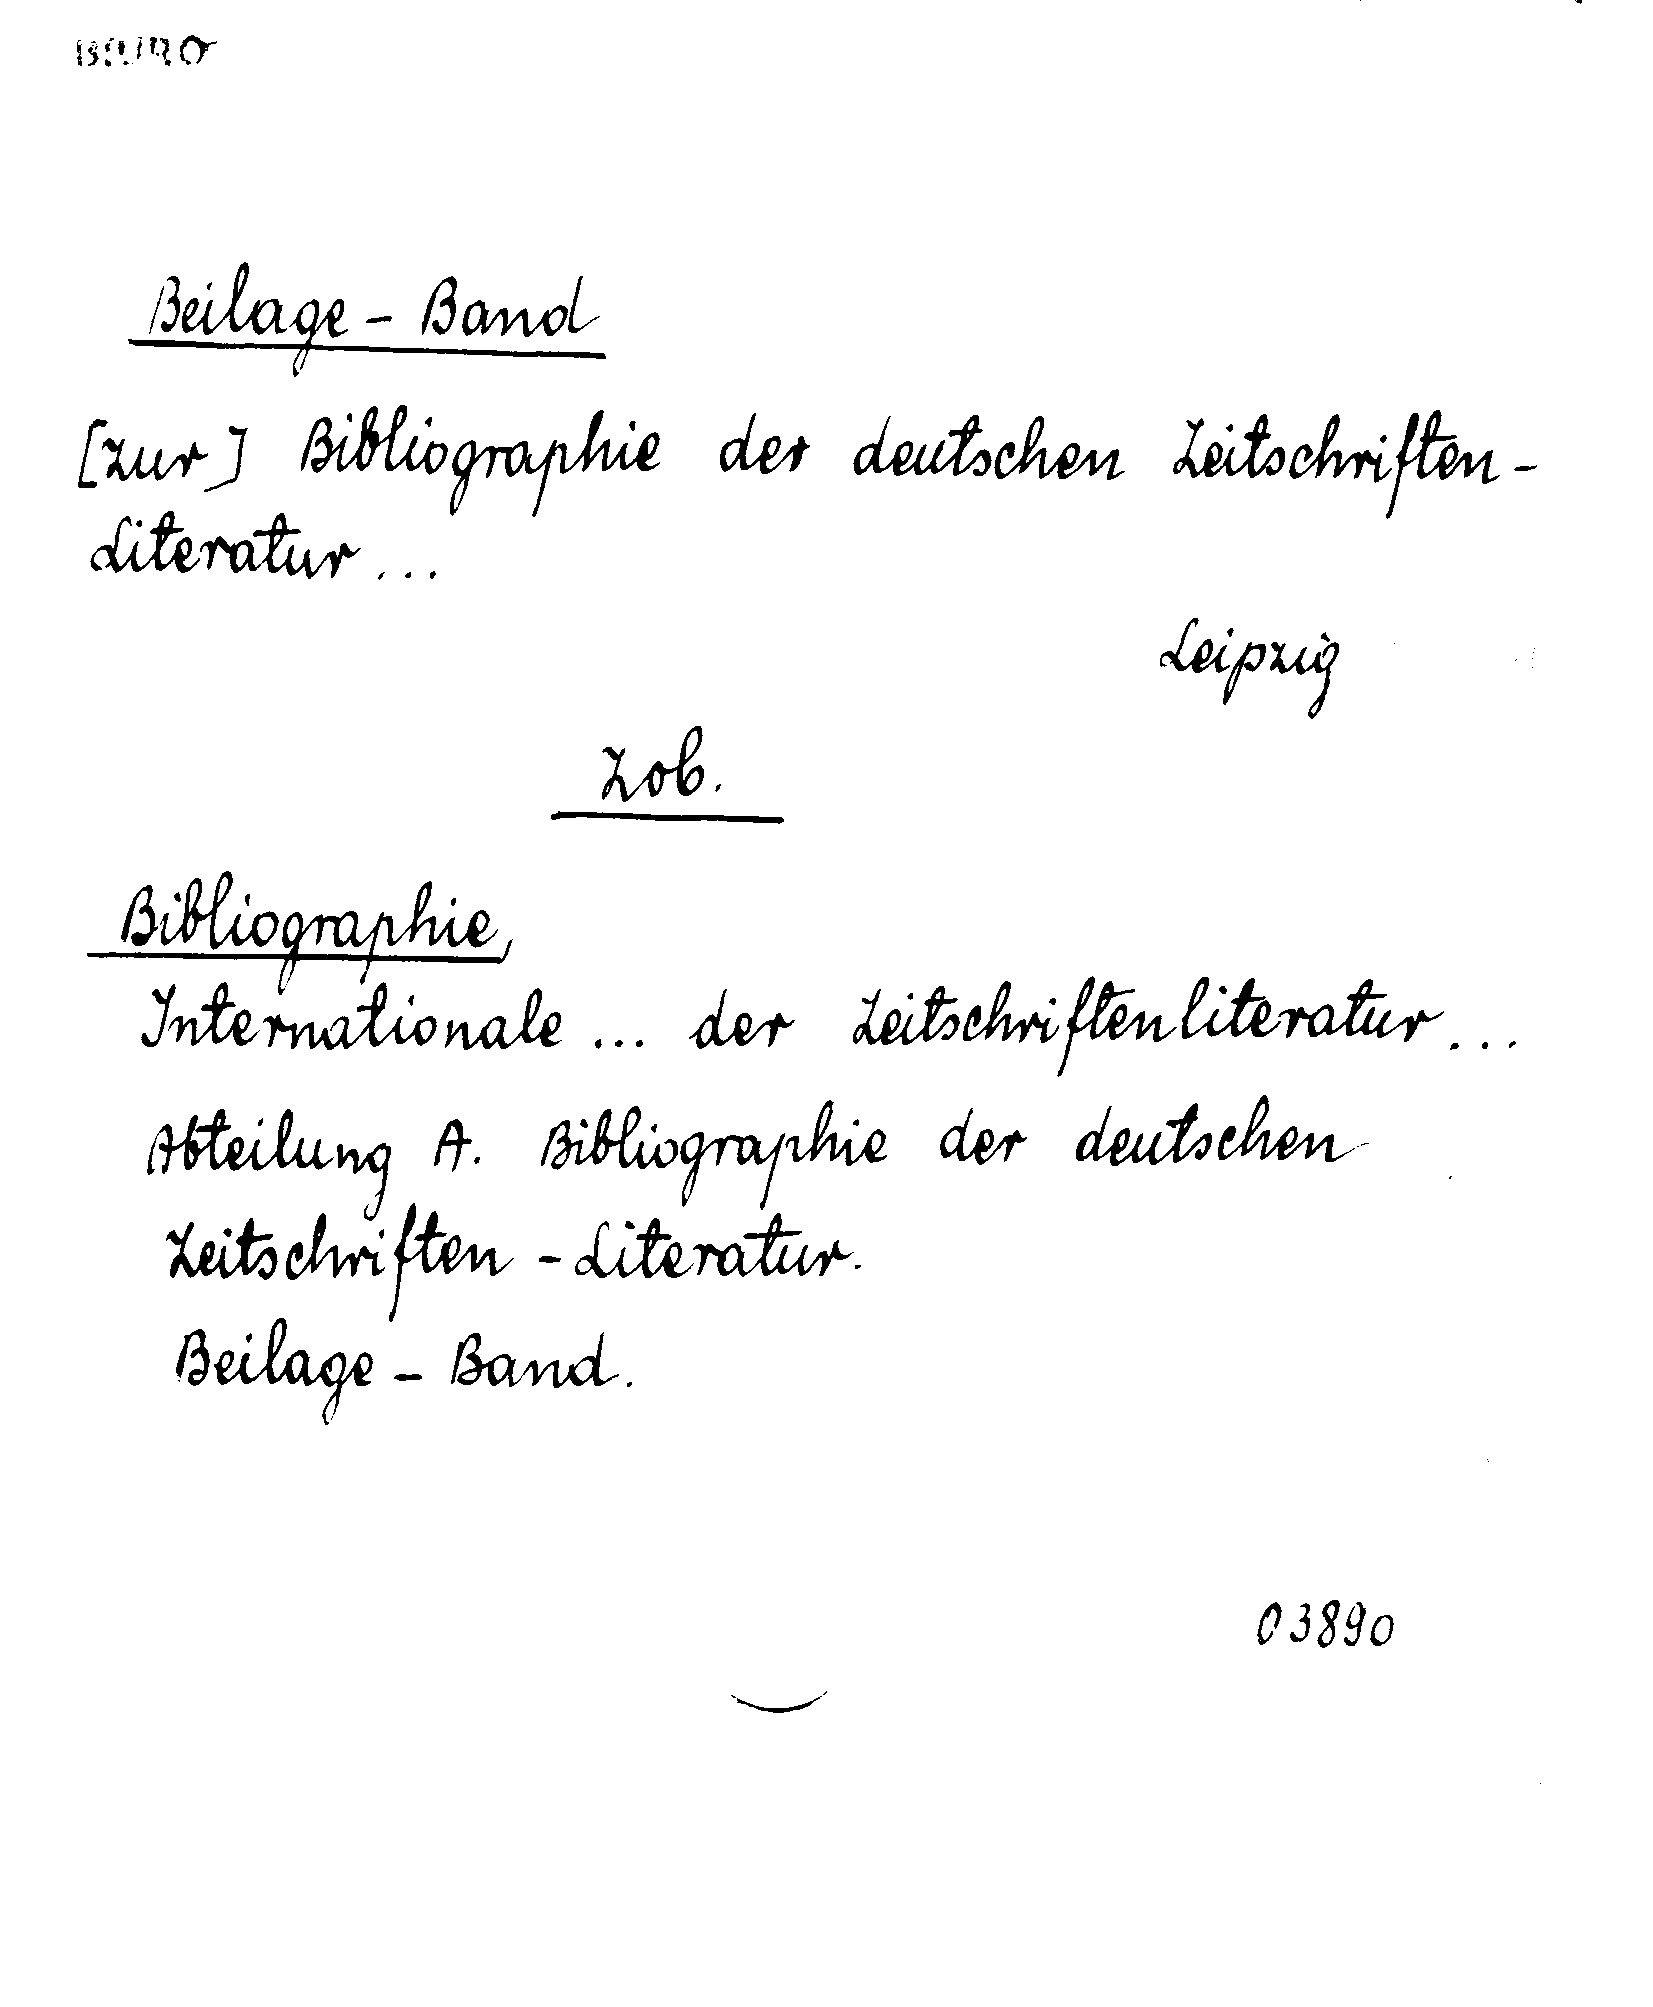 Beilage - Band
[zur] Bibliographie der deutschen Zeitschriften-
Literatur ...
Leipzig
Zob.
Bibliographie,
Internationale ... der Zeitschriftenliteratur ...
Abteilung A. Bibliographie der deutschen
Zeitschriften - Literatur.
Beilage - Band.
03890